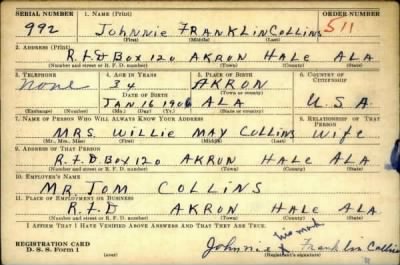 SERIAL NUMBER 1. NAME (Print)
992 Johnnie FRANKLIN Collins 511
(First) (Middle) (Last)
2. ADDRESS (Print)
R.F.D Box 120 AKRON HALE ALA
(Number and street or R. F. D. number) (Town) (County) (State)
3. TELEPHONE 4. AGE IN YEARS 5. PLACE OF BIRTH 6. COUNTRY OF CITIZENSHIP
None 34 AKRON
DATE OF BIRTH (Town or county)
JAN 16 1906 ALA U.S.A
(Exchange) (Number) (Mo.) (Day) (Yr.) (State or country)
7. NAME OF PERSON WHO WILL ALWAYS KNOW YOUR ADDRESS 8. RELATIONSHIP OF THAT PERSON
MRS. Willie MAY Collins Wife
(Mr., Mrs., Miss) (First) (Middle) (Last)
9. ADDRESS OF THAT PERSON
R.F.D. Box 120 AKRON HALE ALA
(Number and street or R. F. D. number) (Town) (County) (State)
10. EMPLOYER'S NAME
MR. TOM COLLINS
11. PLACE OF EMPLOYMENT OR BUSINESS
R.F.D AKRON HALE ALA
(Number and street or R. F. D. number) (Town) (County) (State)
I AFFIRM THAT I HAVE VERIFIED ABOVE ANSWERS AND THAT THEY ARE TRUE.
his mark
REGISTRATION CARD Johnnie X Franklin Collins
D. S. S. Form 1 (Registrant's signature)